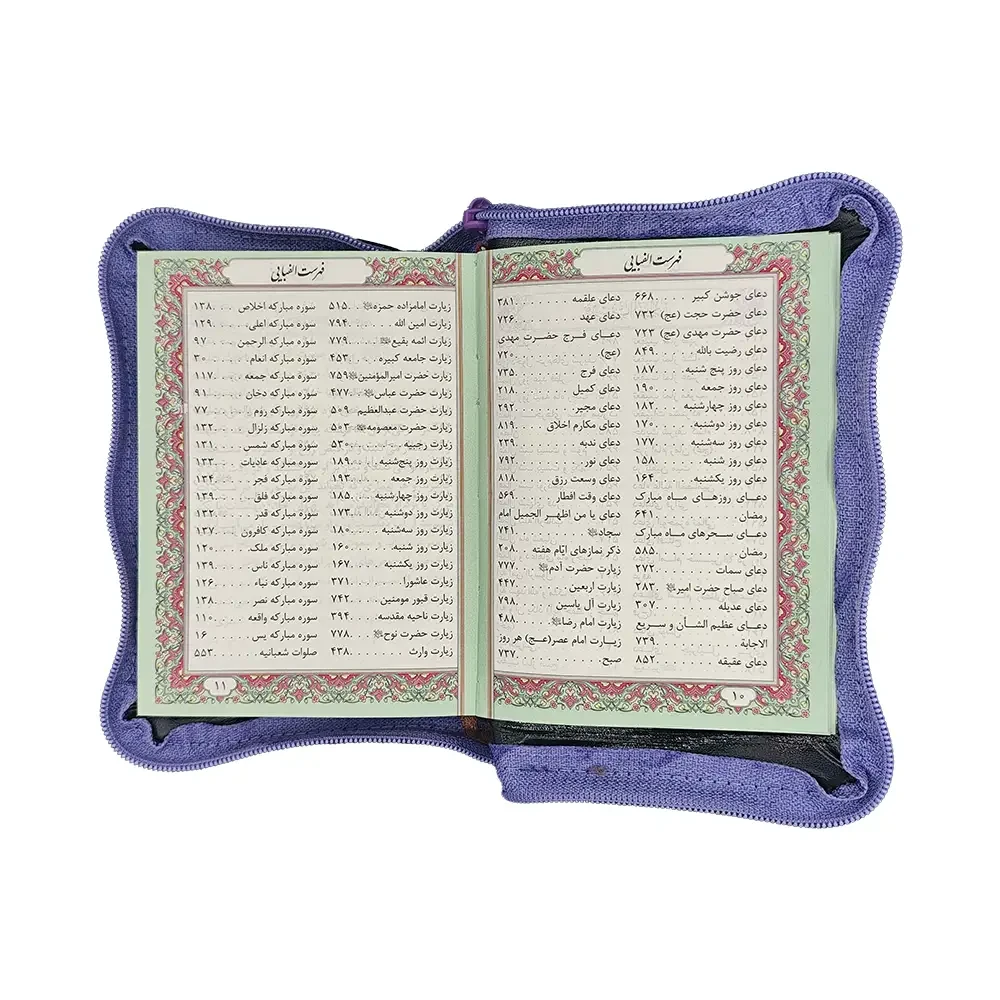 فهرست الفبایی
دعای جوشن کبیر . . . . ۶۶۸
دعای حضرت حجت (عج) ۷۳۲
دعای حضرت مهدی (عج) ۷۲۳
دعای رضیت بالله . . . . . . ۸۴۹
دعای روز پنج شنبه . . . . . ۱۸۷
دعای روز جمعه . . . . . . . ۱۹۰
دعای روز چهارشنبه . . . . ۱۸۲
دعای روز دوشنبه . . . . . . ۱۷۰
دعای روز سه‌شنبه . . . . . ۱۷۷
دعای روز شنبه . . . . . . . ۱۵۸
دعای روز یکشنبه . . . . . . ۱۶۴
دعــای روزهـای مــاه مبارک
رمضان . . . . . . . . . . . . ۶۴۱
دعــای سـحرهای مــاه مبارک
رمضان . . . . . . . . . . . . ۵۸۵
دعای سمات . . . . . . . . . ۲۷۲
دعای صباح حضرت امیر ۲۸۳
دعای عدیله . . . . . . . . . ۳۰۷
دعـای عظیم الشـأن و سریع
الاجابة . . . . . . . . . . . . ۷۳۹
دعای عقیقه . . . . . . . . . ۸۵۲
دعای علقمه . . . . . . . . . ۳۸۱
دعای عهد . . . . . . . . . . ۷۲۶
دعــای فــرج حضــرت مهدی
(عج) . . . . . . . . . . . . . ۷۲۰
دعای فرج . . . . . . . . . . ۷۳۵
دعای کمیل . . . . . . . . . ۲۱۸
دعای مجیر . . . . . . . . . . ۲۹۲
دعای مکارم اخلاق . . . . . ۸۱۹
دعای ندبه . . . . . . . . . . ۲۳۹
دعای نور . . . . . . . . . . . ۷۹۲
دعای وسعت رزق . . . . . . ۸۱۸
دعای وقت افطار . . . . . . ۵۶۹
دعای یا من اظهـر الجمیل امام
سجاد . . . . . . . . . . . . ۷۴۱
ذکر نمازهای ایّام هفته . . ۲۰۸
زیارت حضرت آدم . . . . ۷۷۷
زیارت اربعین . . . . . . . . ۴۴۷
زیارت آل یاسین . . . . . . ۷۹۸
زیارت امام رضا . . . . . . ۴۸۸
زیــارت امام عصر(عـج) هر روز
صبح . . . . . . . . . . . . . ۷۳۷
۱۰
فهرست الفبایی
زیارت امامزاده حمزه ۵۱۵
زیارت امین الله . . . . . . . ۷۹۴
زیارت ائمه بقیع . . . . . . ۷۷۹
زیارت جامعه کبیره . . . . . ۴۵۳
زیارت حضرت امیرالمؤمنین ۷۵۹
زیارت حضرت عباس . . . ۴۷۷
زیارت حضرت عبدالعظیم ۵۰۹
زیارت حضرت معصومه . . ۵۰۳
زیارت رجبیه . . . . . . . . ۵۳۰
زیارت روز پنج‌شنبه . . . . ۱۸۹
زیارت روز جمعه . . . . . . ۱۹۳
زیارت روز چهارشنبه . . . . ۱۸۵
زیارت روز دوشنبه . . . . . ۱۷۳
زیارت روز سه‌شنبه . . . . . ۱۸۰
زیارت روز شنبه . . . . . . . ۱۶۰
زیارت روز یکشنبه . . . . . ۱۶۷
زیارت عاشورا . . . . . . . . ۳۷۱
زیارت قبور مومنین . . . . . ۷۴۲
زیارت ناحیه مقدسه . . . . ۳۹۴
زیارت حضرت نوح . . . . ۷۷۸
زیارت وارث . . . . . . . . . ۴۳۸
سوره مبارکه اخلاص . . . . ۱۳۸
سوره مبارکه اعلی . . . . . . ۱۲۹
سوره مبارکه الرحمن . . . . ۹۷
سوره مبارکه انعام . . . . . . ۳۰
سوره مبارکه جمعه . . . . . ۱۱۷
سوره مبارکه دخان . . . . . ۹۱
سوره مبارکه روم . . . . . . ۷۷
سوره مبارکه زلزال . . . . . ۱۳۲
سوره مبارکه شمس . . . . . ۱۳۱
سوره مبارکه عادیات . . . . ۱۳۳
سوره مبارکه فجر . . . . . . ۱۳۴
سوره مبارکه فلق . . . . . . ۱۳۹
سوره مبارکه قدر . . . . . . ۱۳۲
سوره مبارکه کافرون . . . . ۱۳۷
سوره مبارکه ملک . . . . . . ۱۲۰
سوره مبارکه ناس . . . . . . ۱۳۹
سوره مبارکه نباء . . . . . . ۱۲۶
سوره مبارکه نصر . . . . . . ۱۳۸
سوره مبارکه واقعه . . . . . ۱۱۰
سوره مبارکه یس . . . . . . ۱۶
صلوات شعبانیه . . . . . . . ۵۵۳
۱۱